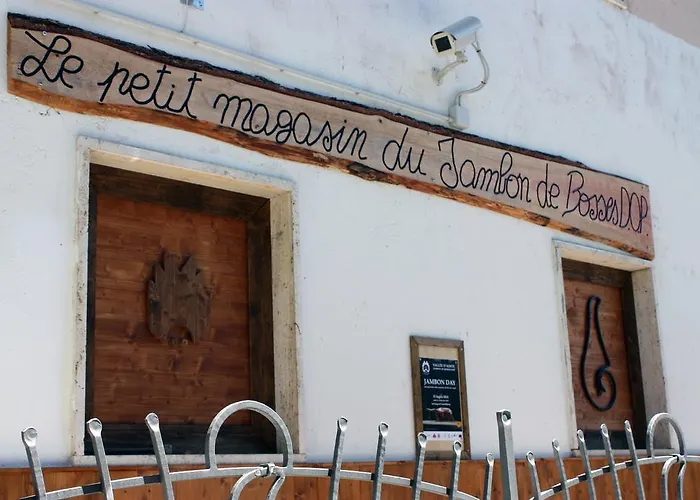 Le petit magasin du Jambon de Bosses D.O.P.
JAMBON DAY